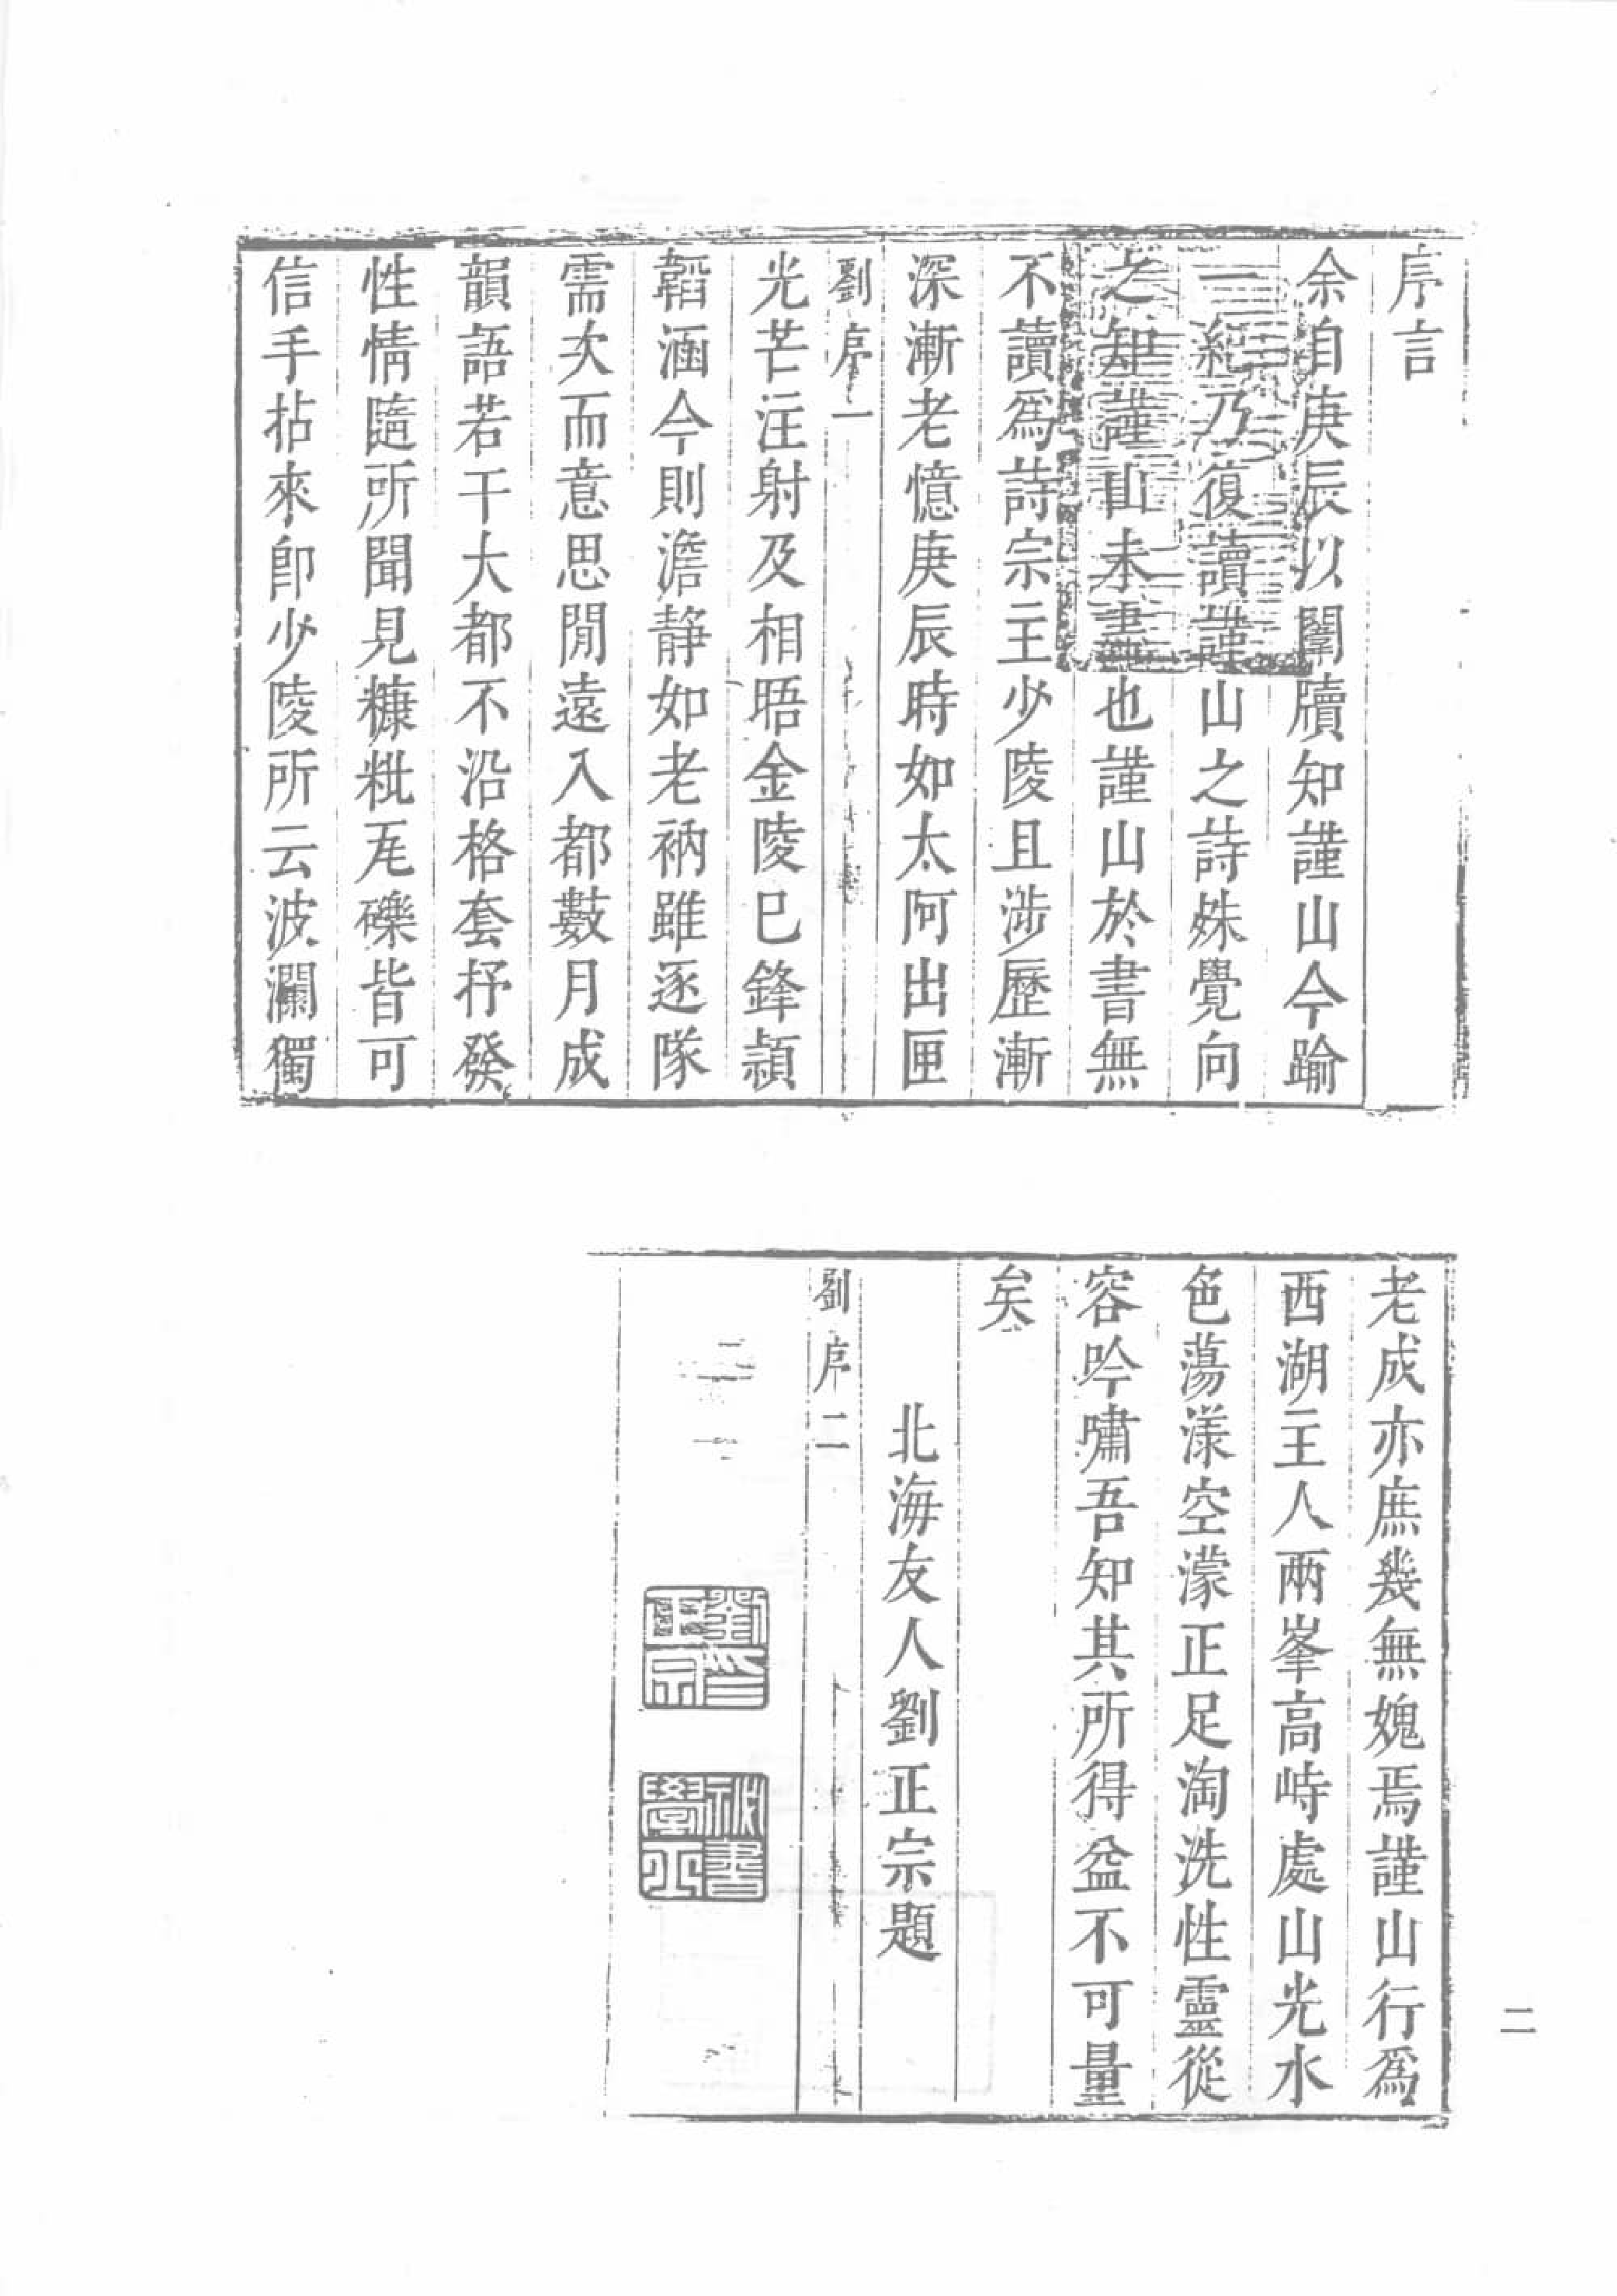 序言
余自庚辰以闈牘知謹山今踰
一紀乃復讀謹山之詩姝覺向
之知謹山未盡也謹山於書無
不讀爲詩宗主少陵且涉歷漸
深漸老憶庚辰時如太阿出匣
劉序 一
光芒注射及相晤金陵巳鋒頴
韜涵今則澹靜如老衲雖逐隊
需次而意思閒遠入都數月成
韻語若干大都不沿格套抒發
性情隨所聞見糠粃瓦礫皆可
信手拈來卽少陵所云波瀾獨
老成亦庶幾無媿焉謹山行爲
西湖主人兩峯高峙處山光水
色蕩漾空濛正足淘洗性靈從
容吟嘯吾知其所得益不可量
矣
北海友人劉正宗題
劉序 二
劉正宗印
秘書學士
二